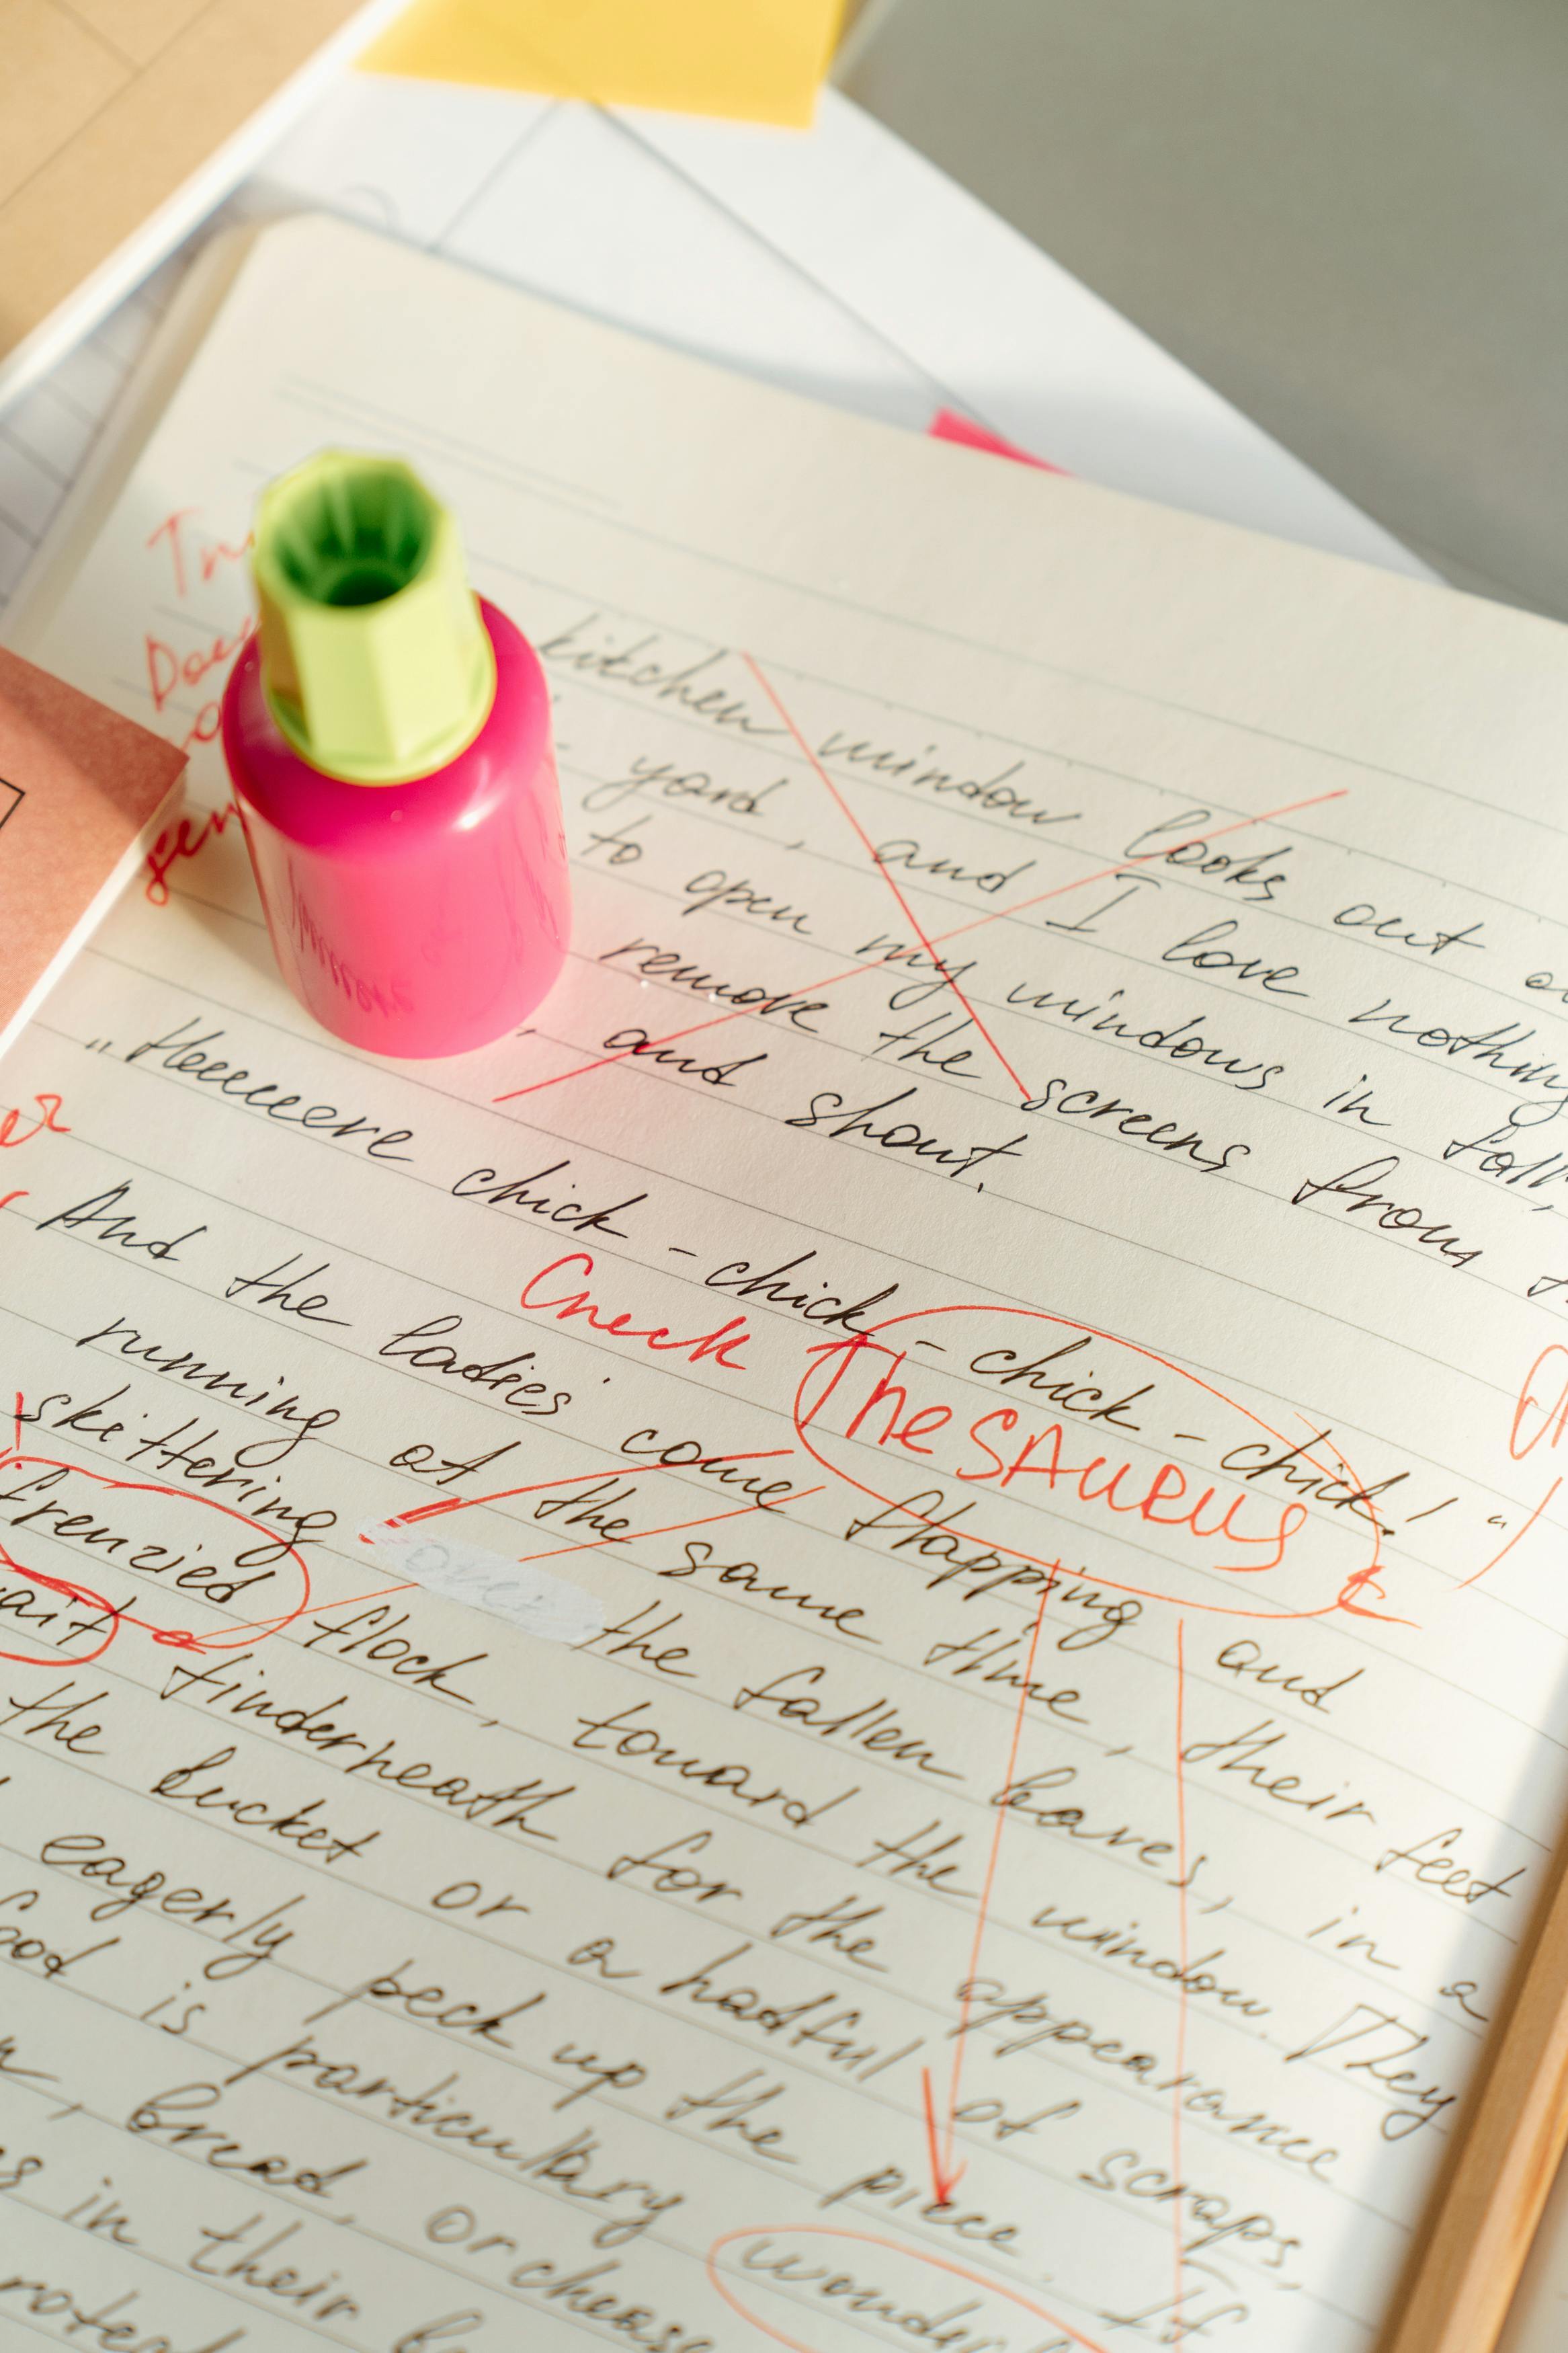 kitchen window looks out
yard, and I love nothing
to open my windows in fall,
remove the screens from
, and shout.
„Heeeeere chick-chick-chick-chick!“
Check TheSAURUS
And the ladies come flapping and
running at the same time, their feet
skittering over the fallen leaves, in a
frenzied flock, toward the window. They
ait tinderneath for the appearance
the bucket or a hadful of scraps,
eagerly peck up the piece. If
food is particulary wonder
, bread, or cheese
s in their